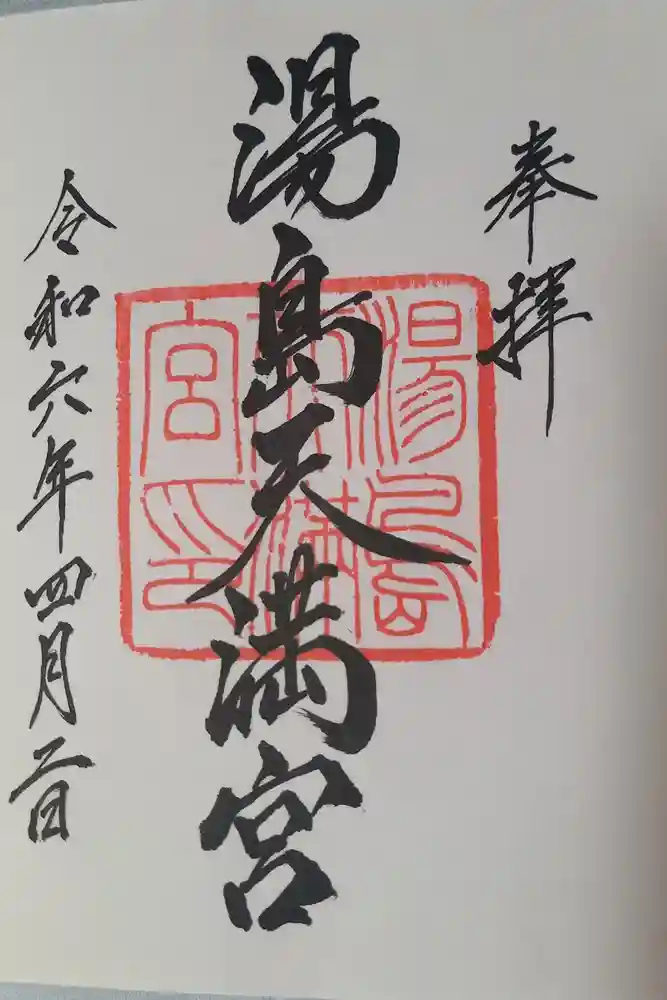 奉拝
湯島天満宮
湯島天満宮印
令和六年四月二日